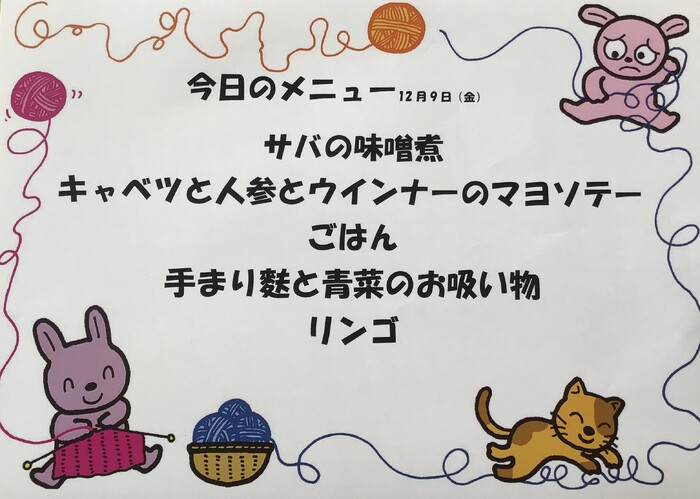 今日のメニュー12月9日（金）
サバの味噌煮
キャベツと人参とウインナーのマヨソテー
ごはん
手まり麩と青菜のお吸い物
リンゴ